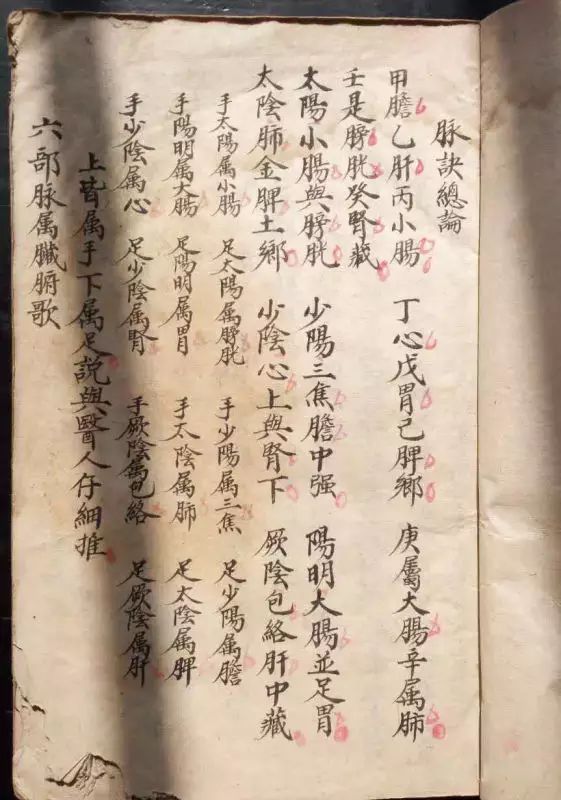 脉訣總論
甲膽乙肝丙小腸 丁心戊胃己脾鄉 庚屬大腸辛属肺
壬是膀胱癸腎藏
太陽小腸與膀胱 少陽三焦膽中强 陽明大腸並足胃
太陰肺金脾土鄉 少陰心上與腎下 厥陰包絡肝中藏
手太陽属小腸 足太陽属膀胱 手少陽属三焦 足少陽属膽
手陽明属大腸 足陽明属胃 手太陰属肺 足太陰属脾
手少陰属心 足少陰属腎 手厥陰属包絡 足厥陰属肝
上皆属手下属足説與醫人仔細推
六部脉属臟腑歌